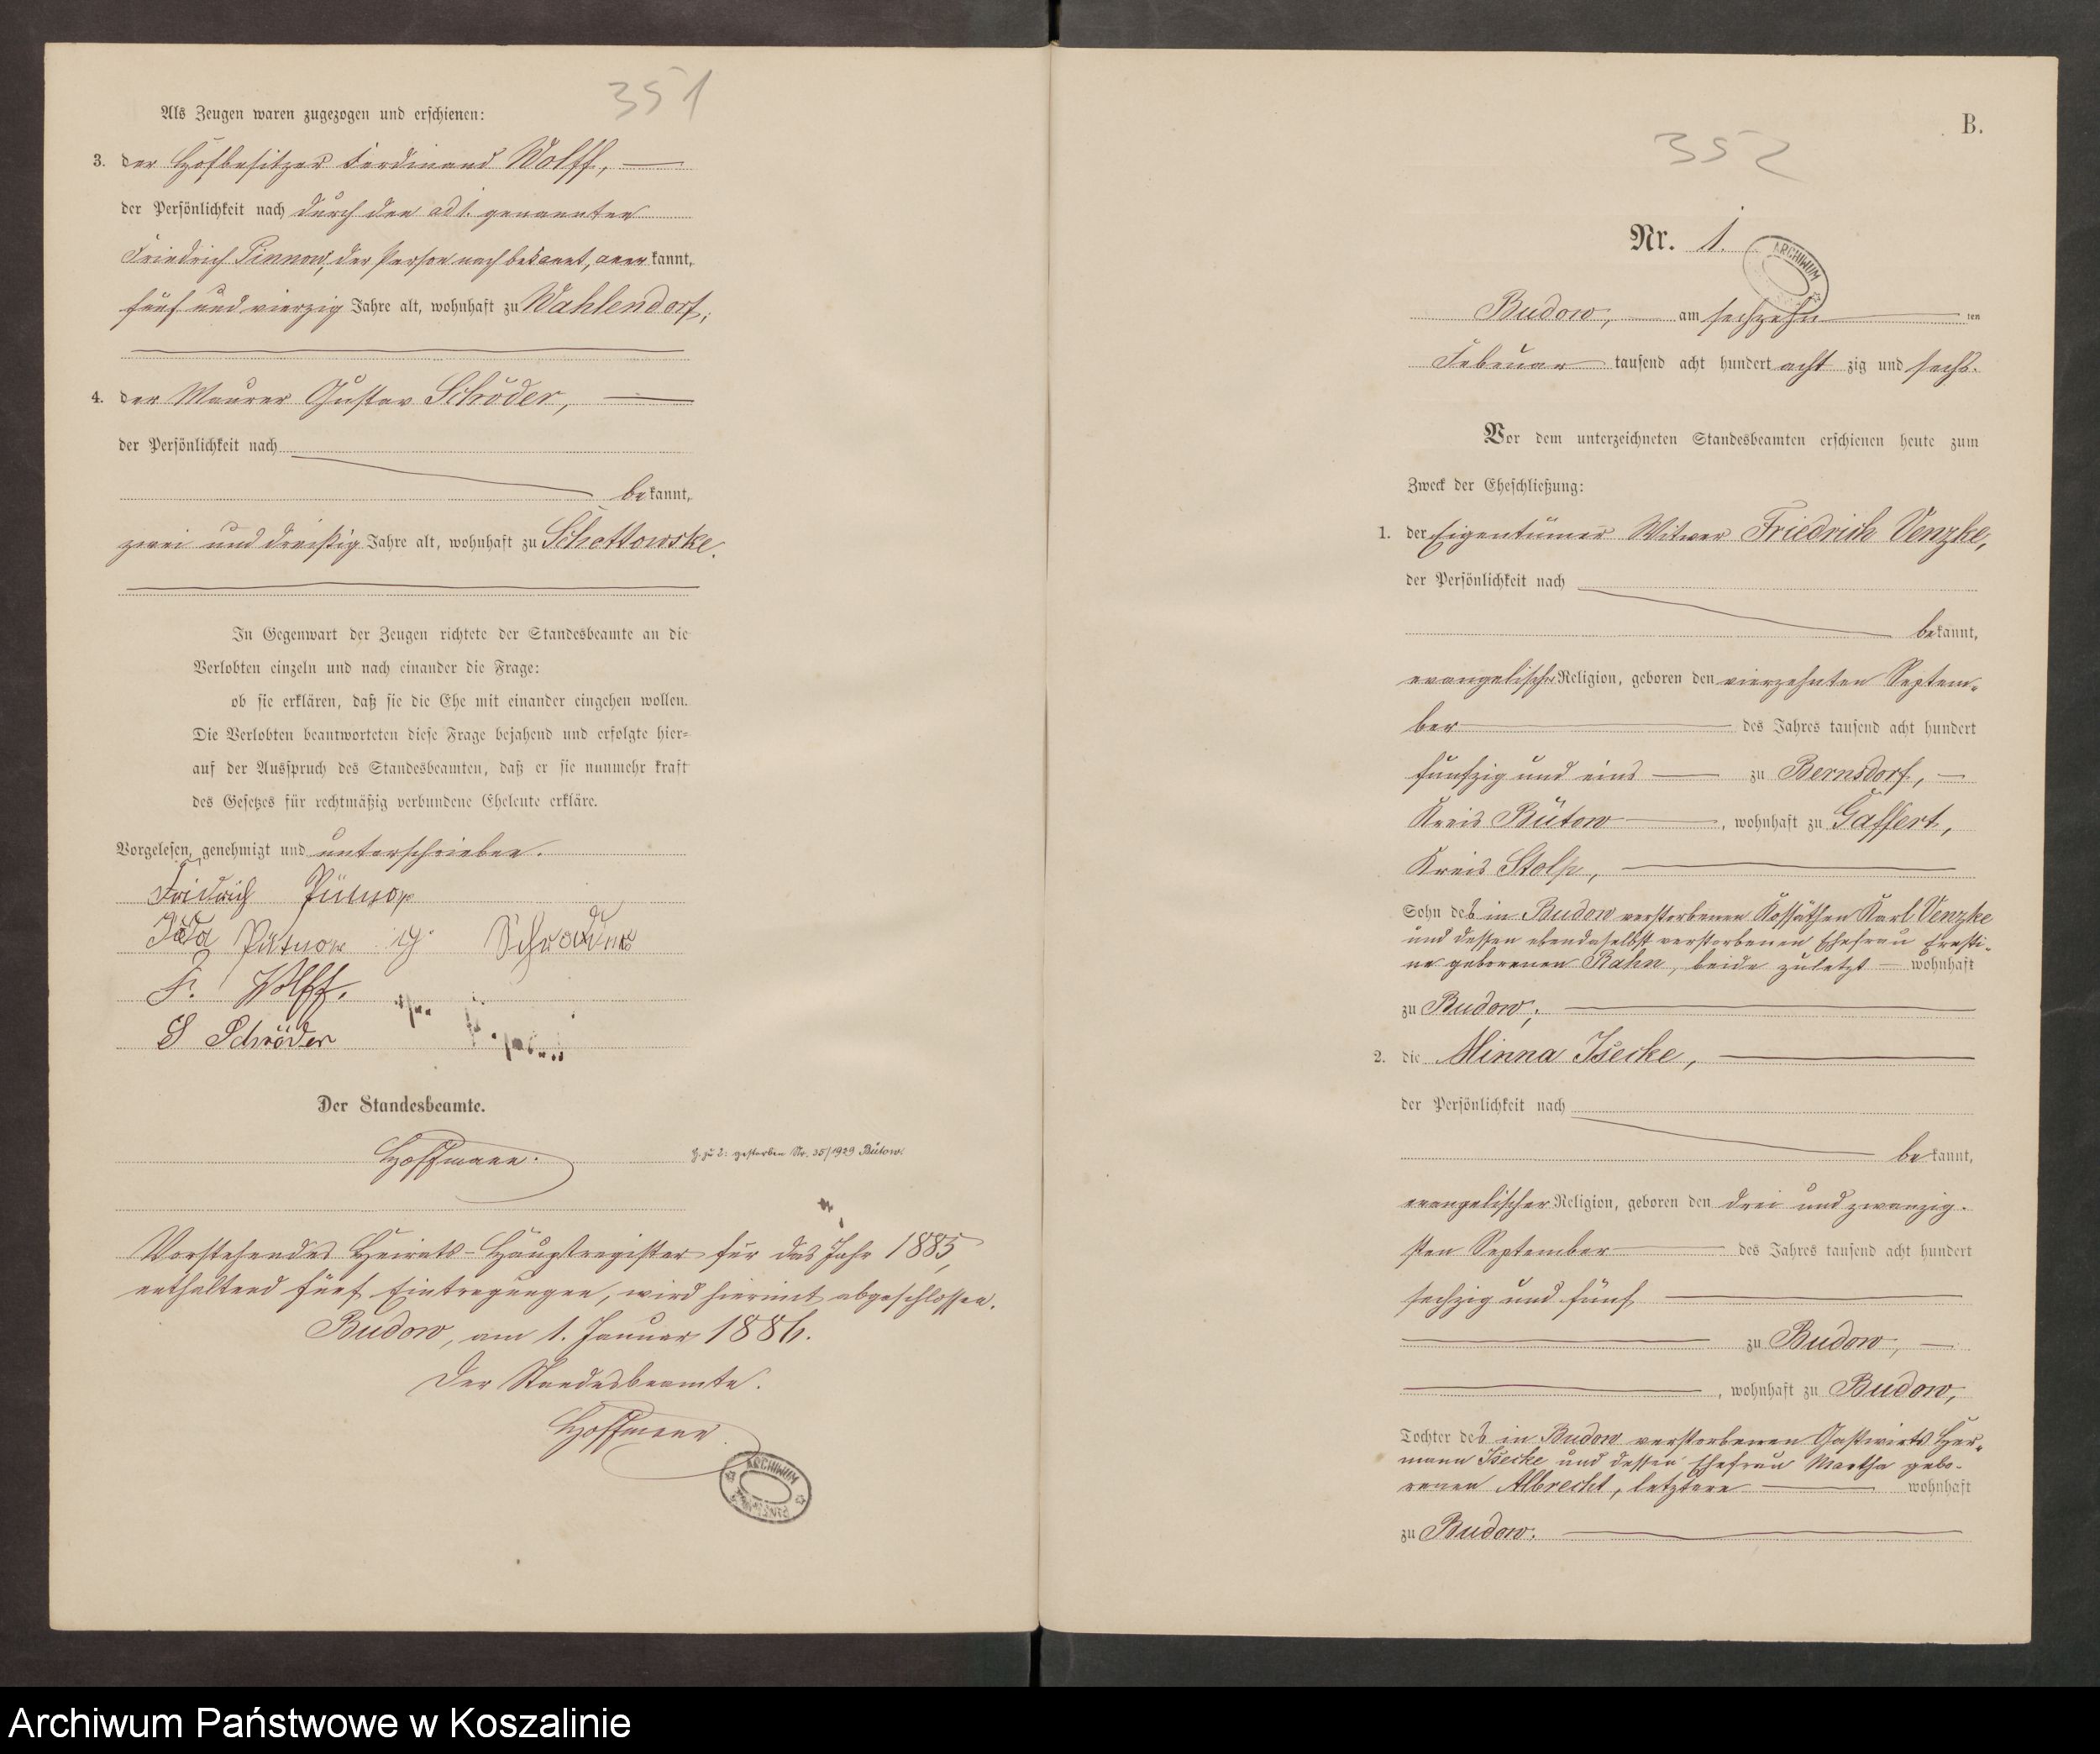 351
Als Zeugen waren zugezogen und erschienen:
3. der Hofbesitzer Ferdinand Wolff,
der Persönlichkeit nach durch den ad 1. genannten
Friedrich Pinnow, der Person nach bekannt, anerkannt,
fünf und vierzig Jahre alt, wohnhaft zu Wahlendorf;
4. der Maurer Gustav Schöder,
der Persönlichkeit nach
bekannt,
zwei und dreißig Jahre alt, wohnhaft zu Schottowske.
In Gegenwart der Zeugen richtete der Standesbeamte an die
Verlobten einzeln und nach einander die Frage:
ob sie erklären, daß sie die Ehe mit einander eingehen wollen.
Die Verlobten beantworteten diese Frage bejahend und erfolgte hier-
auf der Ausspruch des Standesbeamten, daß er sie nunmehr kraft
des Gesetzes für rechtmäßig verbundene Eheleute erkläre.
Vorgelesen, genehmigt und unterschrieben.
Fridrich
F. Wolff.
G Schröder
Der Standesbeamte.
Hoffmann.
H. zu 2: gestorben Nr. 35/1929 Bütow.
Vorstehendes Heirats-Hauptregister für das Jahr 1885,
enthaltend fünf Eintragungen, wird hiermit abgeschlossen.
Budow, am 1. Januar 1886.
Der Standesbeamte.
Hoffmann
ARCHIWUM
B.
352
Nr. 1.
ARCHIWUM
Budow, am sechzehn ten
Februar tausend acht hundert acht zig und sechs.
Vor dem unterzeichneten Standesbeamten erschienen heute zum
Zweck der Eheschließung:
1. der Eigentümer Witwer Friedrich Venzke,
der Persönlichkeit nach
bekannt,
evangelischer Religion, geboren den vierzehnten Septem-
ber des Jahres tausend acht hundert
fünfzig und eins zu Bernsdorf,
Kreis Bütow, wohnhaft zu Gaffert,
Kreis Stolp,
Sohn des in Budow verstorbenen Kossäthen Karl Venzke
und dessen ebendaselbst verstorbenen Ehefrau Ernesti-
ne geborenen Rahn, beide zuletzt wohnhaft
zu Budow;
2. die Minna Isecke,
der Persönlichkeit nach
bekannt,
evangelischer Religion, geboren den drei und zwanzig-
sten September des Jahres tausend acht hundert
sechzig und fünf
zu Budow,
, wohnhaft zu Budow,
Tochter des in Budow verstorbenen Gastwirts Her-
mann Isecke und dessen Ehefrau Martha gebo-
renen Albrecht, letztere wohnhaft
zu Budow.
Archiwum Państwowe w Koszalinie